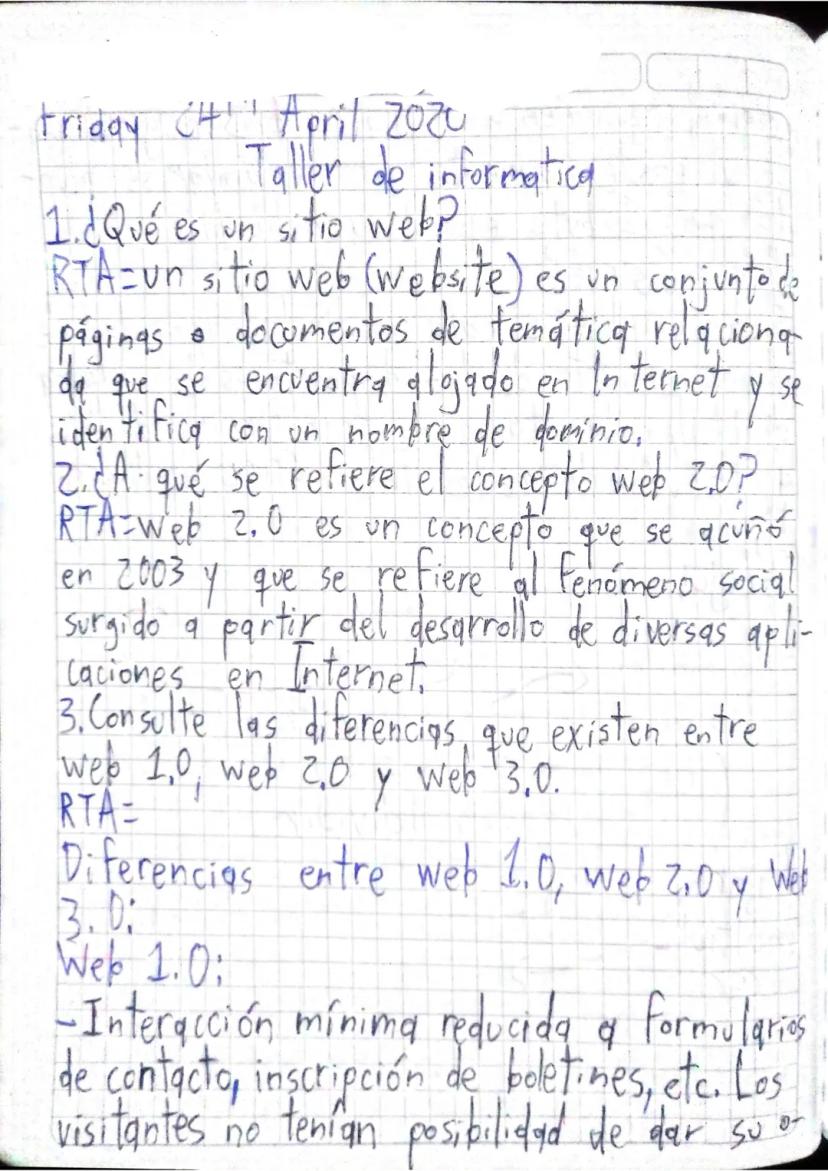 Friday 24th April 2020
Taller de informatica
1.¿Qué es un sitio web?
RTA=un sitio web (website) es un conjunto de
páginas o documentos de temática relaciona-
da que se encuentra alojado en Internet y se
identifica con un nombre de dominio.
2.¿A qué se refiere el concepto web 2.0?
RTA=web 2.0 es un concepto que se acuñó
en 2003 y que se refiere al fenómeno social
surgido a partir del desarrollo de diversas apli-
caciones en Internet.
3.Consulte las diferencias que existen entre
web 1.0, web 2.0 y web 3.0.
RTA=
Diferencias entre web 1.0, web 2.0 y Web
3.0:
Web 1.0:
-Interacción mínima reducida a formularios
de contacto, inscripción de boletines, etc. Los
visitantes no tenían posibilidad de dar su o-